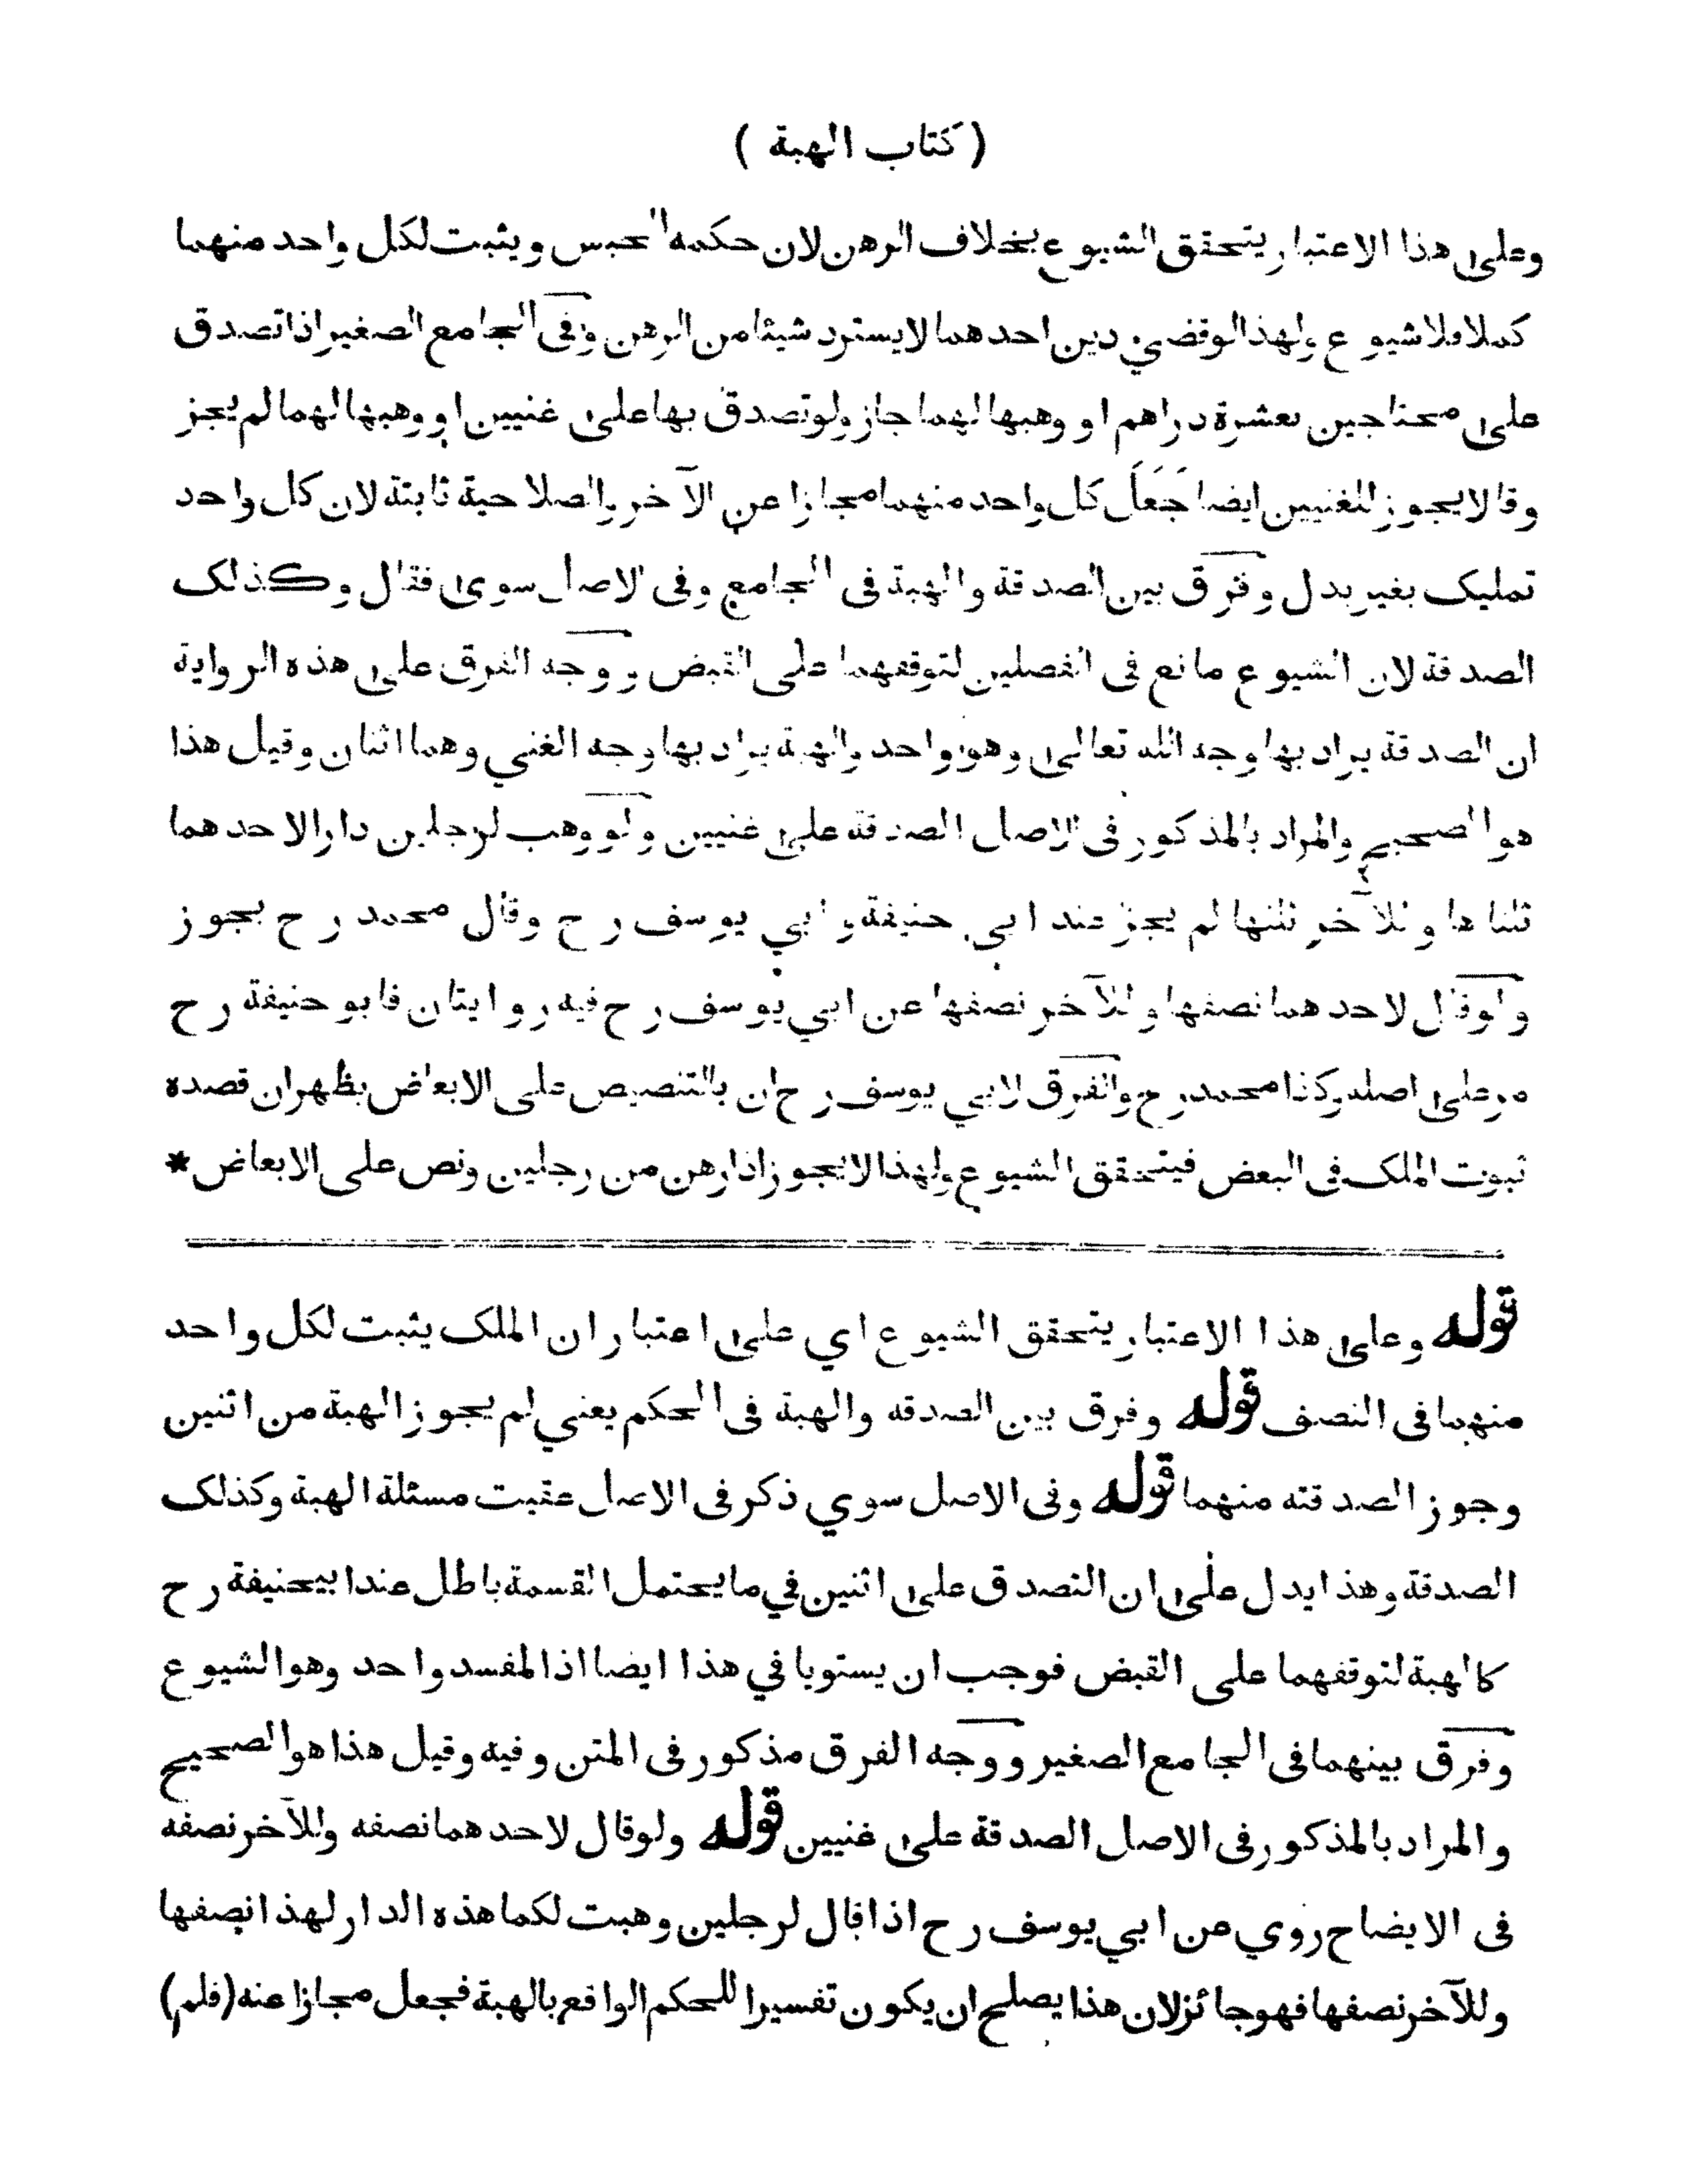 ( كتاب الهبة )
وعلى هذا الاعتبار يتحقق الشيوع بخلاف الرهن لان حكمه الحبس ويثبت لكل واحد منهما
كملا فلا شيوع ولهذا لو قضي دين احدهما لا يسترد شيئا من الرهن وفى الجامع الصغير اذا تصدق
على محتاجين بعشرة دراهم او وهبها لهما جاز ولو تصدق بها على غنيين او وهبها لهما لم يجز
وقالا يجوز للغنيين ايضا جَعَلَ كل واحد منهما مجازا عن الآخر والصلاحية ثابتة لان كل واحد
تمليك بغير بدل وفرق بين الصدقة والهبة فى الجامع وفى الاصل سوى فقال وكذلك
الصدقة لان الشيوع مانع فى الفصلين لتوقفهما على القبض ووجه الفرق على هذه الرواية
ان الصدقة يراد بها وجه الله تعالى وهو واحد والهبة يراد بها وجه الغني وهما اثنان وقيل هذا
هو الصحيح والمراد بالمذكور فى الاصل الصدقة على غنيين ولو وهب لرجلين دارا لاحدهما
ثلثاها وللآخر ثلثها لم يجز عند ابي حنيفة وابي يوسف رح وقال محمد رح يجوز
ولو قال لاحدهما نصفها وللآخر نصفها عن ابي يوسف رح فيه روايتان فابو حنيفة رح
مر على اصله وكذا محمد رح والفرق لابي يوسف رح ان بالتنصيص على الابعاض يظهر ان قصده
ثبوت الملك فى البعض فيتحقق الشيوع ولهذا لا يجوز اذا رهن من رجلين ونص على الابعاض *
قوله وعلى هذا الاعتبار يتحقق الشيوع اي على اعتبار ان الملك يثبت لكل واحد
منهما فى النصف قوله وفرق بين الصدقه والهبة فى الحكم يعني لم يجوز الهبة من اثنين
وجوز الصدقته منهما قوله وفى الاصل سوي ذكر فى الاصل عقيت مسئلة الهبة وكذلك
الصدقة وهذا يدل على ان التصدق على اثنين في ما يحتمل القسمة باطل عند ابيحنيفة رح
كالهبة لتوقفهما على القبض فوجب ان يستويا في هذا ايضا اذا لمفسد واحد وهو الشيوع
وفرق بينهما فى الجامع الصغير ووجه الفرق مذكور فى المتن وفيه وقيل هذا هو الصحيح
والمراد بالمذكور فى الاصل الصدقة على غنيين قوله ولو قال لاحدهما نصفه وللآخر نصفه
فى الايضاح روي عن ابي يوسف رح اذا قال لرجلين وهبت لكما هذه الدار لهذا نصفها
وللآخر نصفها فهو جائز لان هذا يصلح ان يكون تفسيرا للحكم الواقع بالهبة فجعل مجازا عنه (فلم)